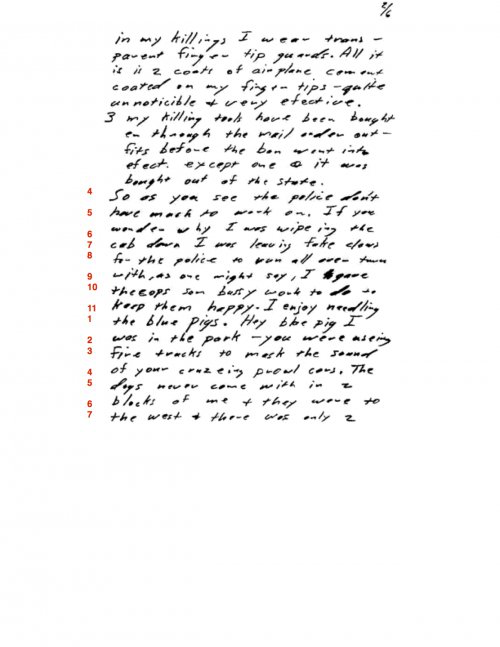 2/6
in my killings I wear trans-
parent finger tip guards. All it
is is 2 coats of airplane cement
coated on my finger tips - quite
unnoticible & very efective.
3 my killing tools have been bought
en through the mail order out-
fits before the ban went into
efect. except one & it was
bought out of the state.
4 So as you see the police don't
5 have much to work on. If you
6 wonder why I was wipeing the
7 cab down I was leaving fake clews
8 for the police to run all over town
9 with, as one might say, I gave
10 the cops som bussy work to do to
11 keep them happy. I enjoy needling
1 the blue pigs. Hey blue pig I
2 was in the park - you were useing
3 fire trucks to mask the sound
4 of your cruzeing prowl cars. The
5 dogs never came with in 2
6 blocks of me & they were to
7 the west & there was only 2